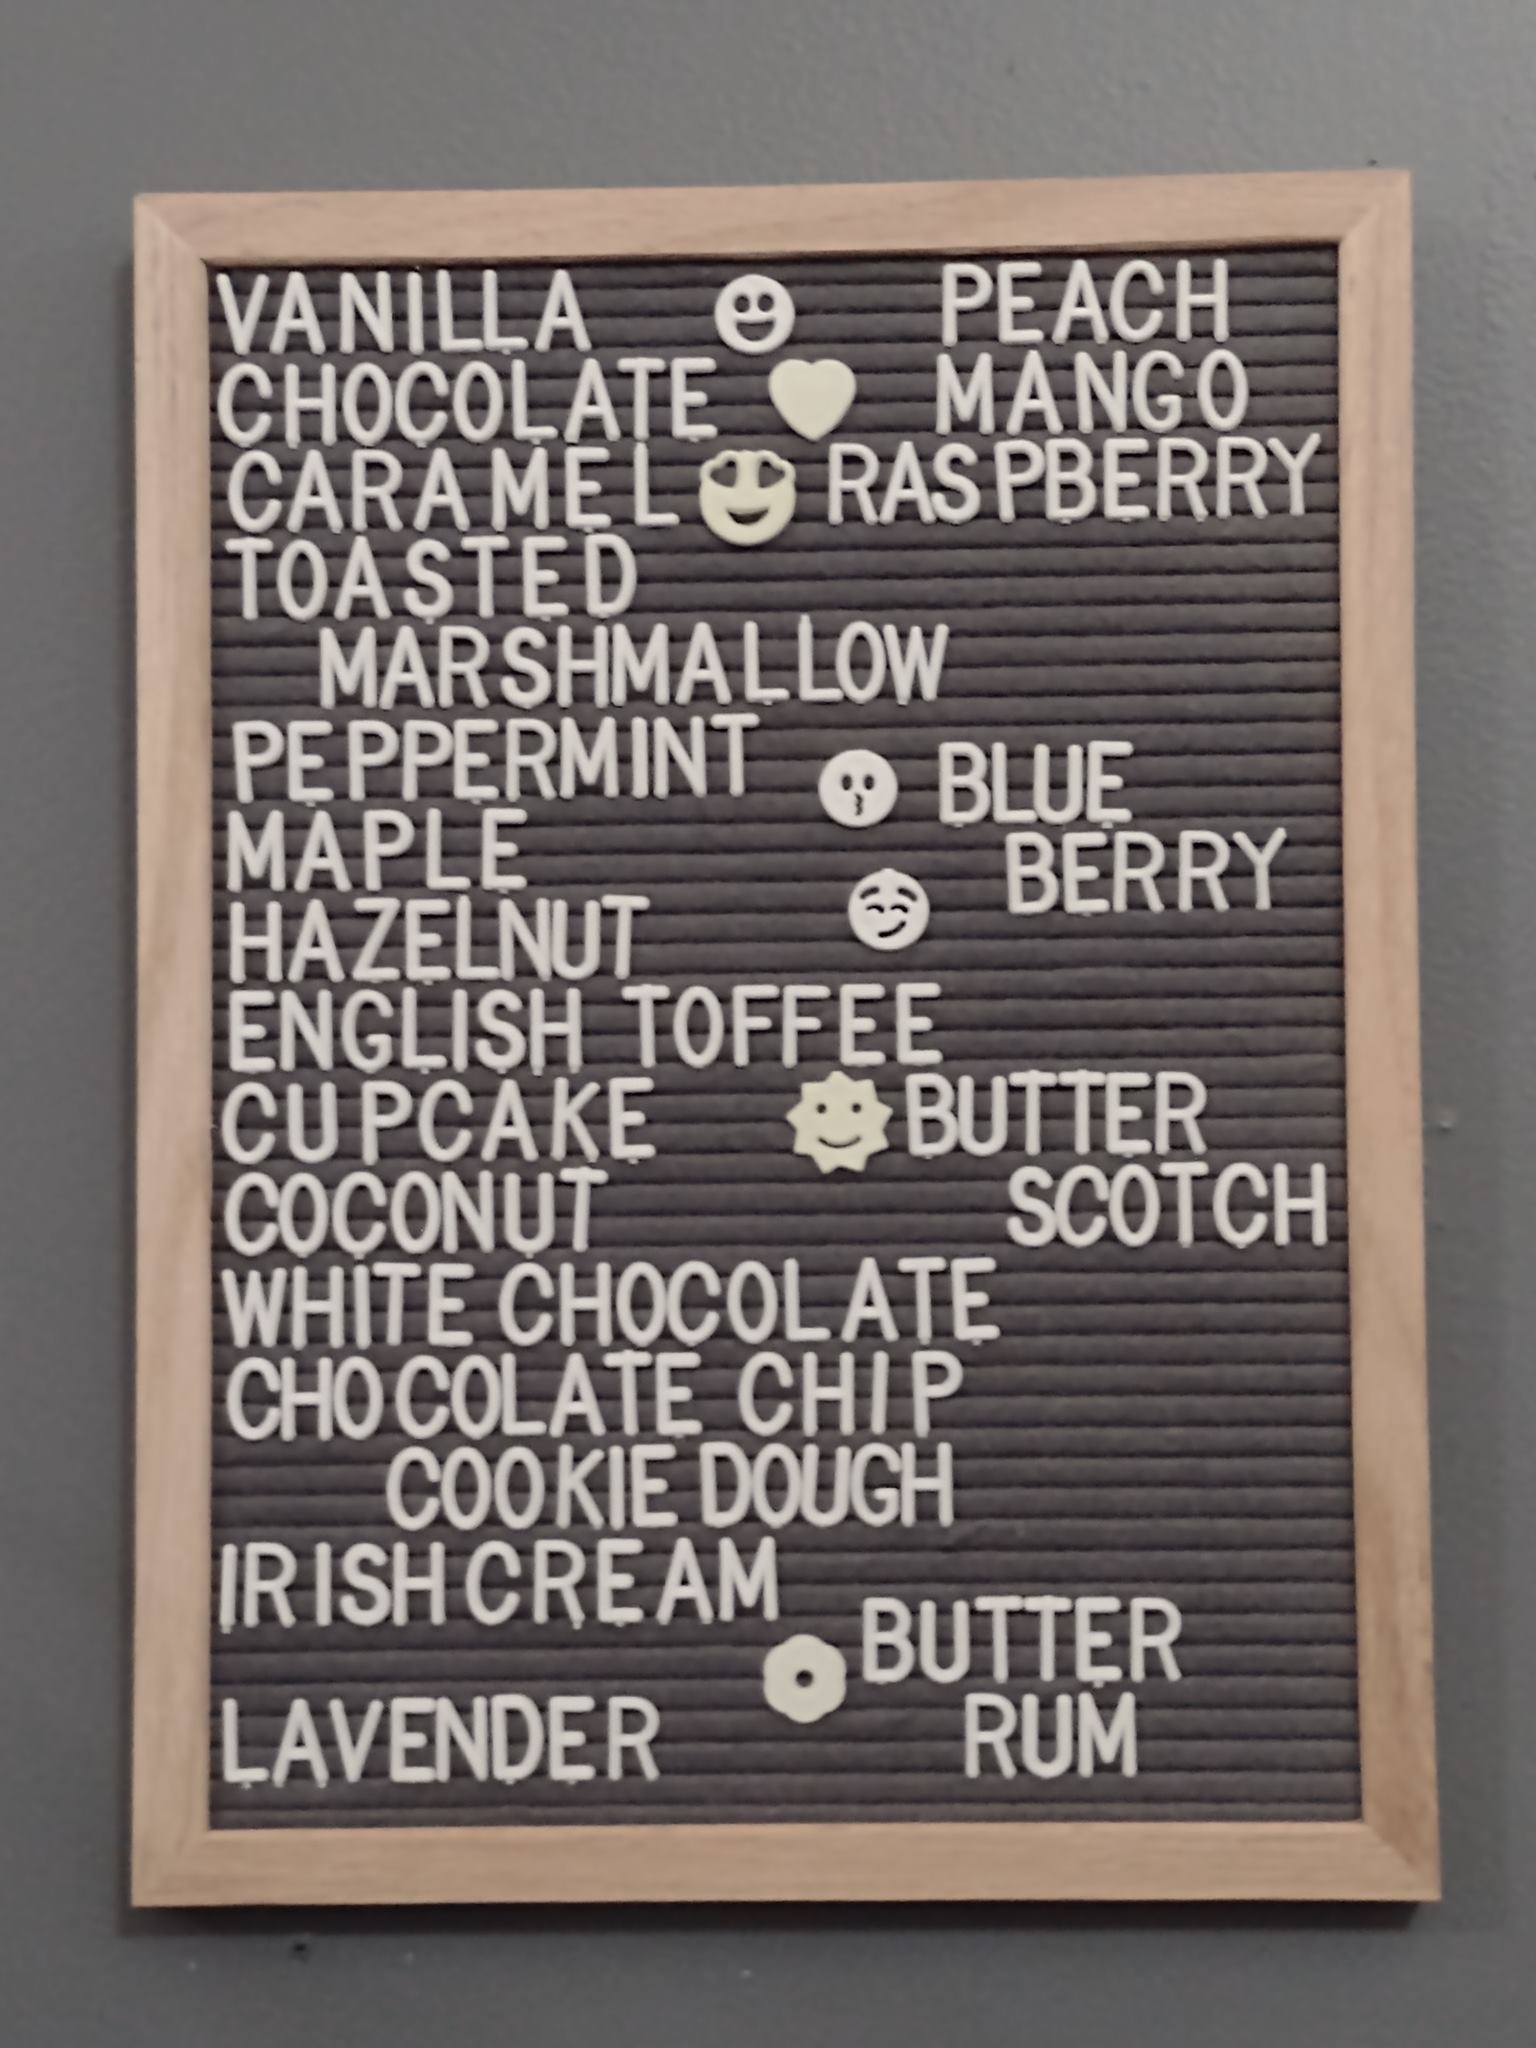 VANILLA PEACH
CHOCOLATE MANGO
CARAMEL RASPBERRY
TOASTED
MARSHMALLOW
PEPPERMINT BLUE
MAPLE BERRY
HAZELNUT
ENGLISH TOFFEE
CUPCAKE BUTTER
COCONUT SCOTCH
WHITE CHOCOLATE
CHOCOLATE CHIP
COOKIE DOUGH
IRISH CREAM
BUTTER
LAVENDER RUM